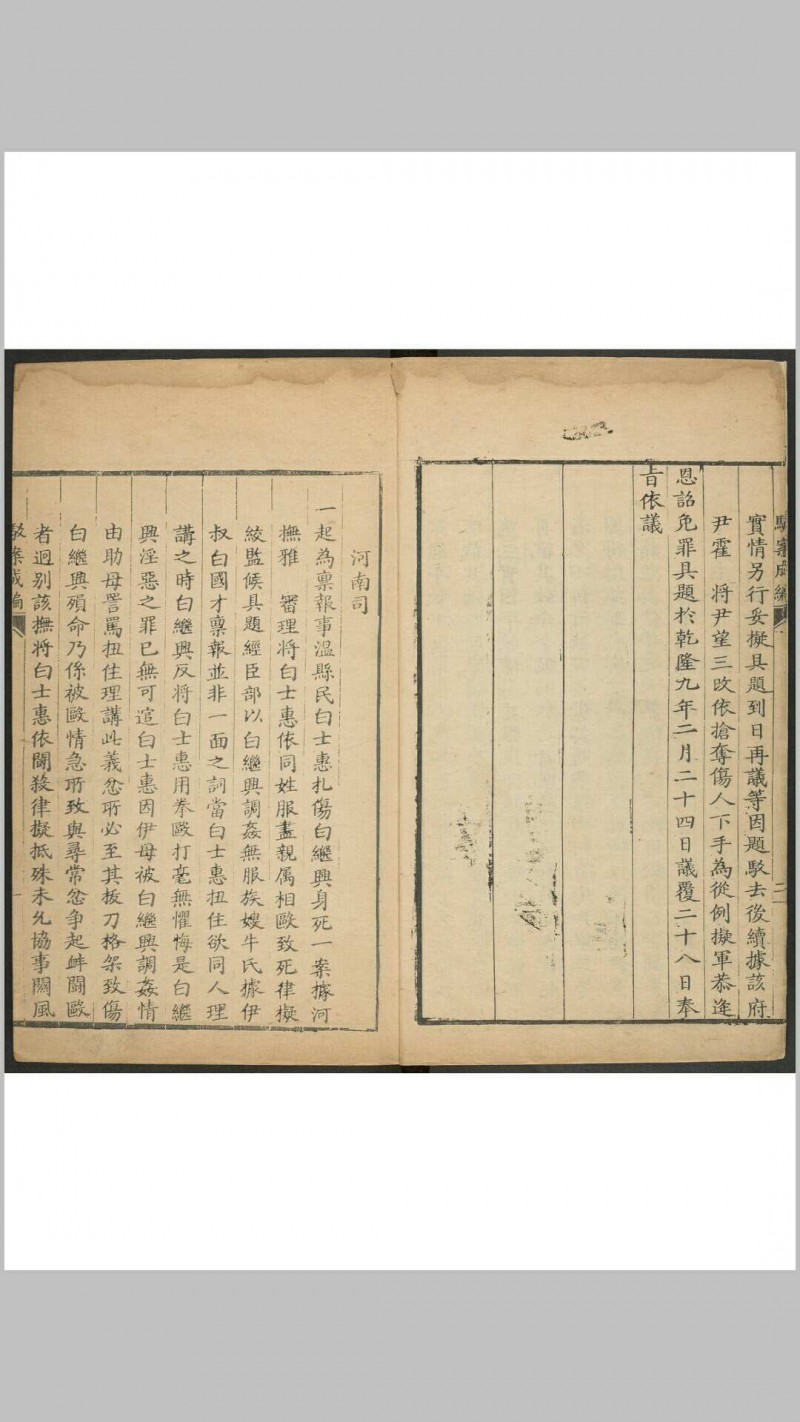 駁案成編
實情另行妥擬具題到日再議等因題駁去後續據該府
尹霍 將尹望三改依搶奪傷人下手為從例擬軍恭逢
恩詔免罪具題於乾隆九年二月二十四日議覆二十八日奉
旨依議
河南司
一起為禀報事溫縣民白士惠扎傷白繼興身死一案據河
撫雅 審理將白士惠依同姓服盡親属相毆致死律擬
絞監候具題經臣部以白繼興調姦無服族嫂牛氏據伊
叔白國才禀報並非一面之詞當白士惠扭住欲同人理
講之時白繼興反將白士惠用拳毆打毫無懼悔是白繼
興淫惡之罪已無可逭白士惠因伊母被白繼興調姦情
由助母詈罵扭住理講此義忿所必至其拔刀格架致傷
白繼興殞命乃係被毆情急所致與尋常忿争起衅鬪毆
者迥别該撫將白士惠依鬪殺律擬抵殊未允協事關風
駁案成編